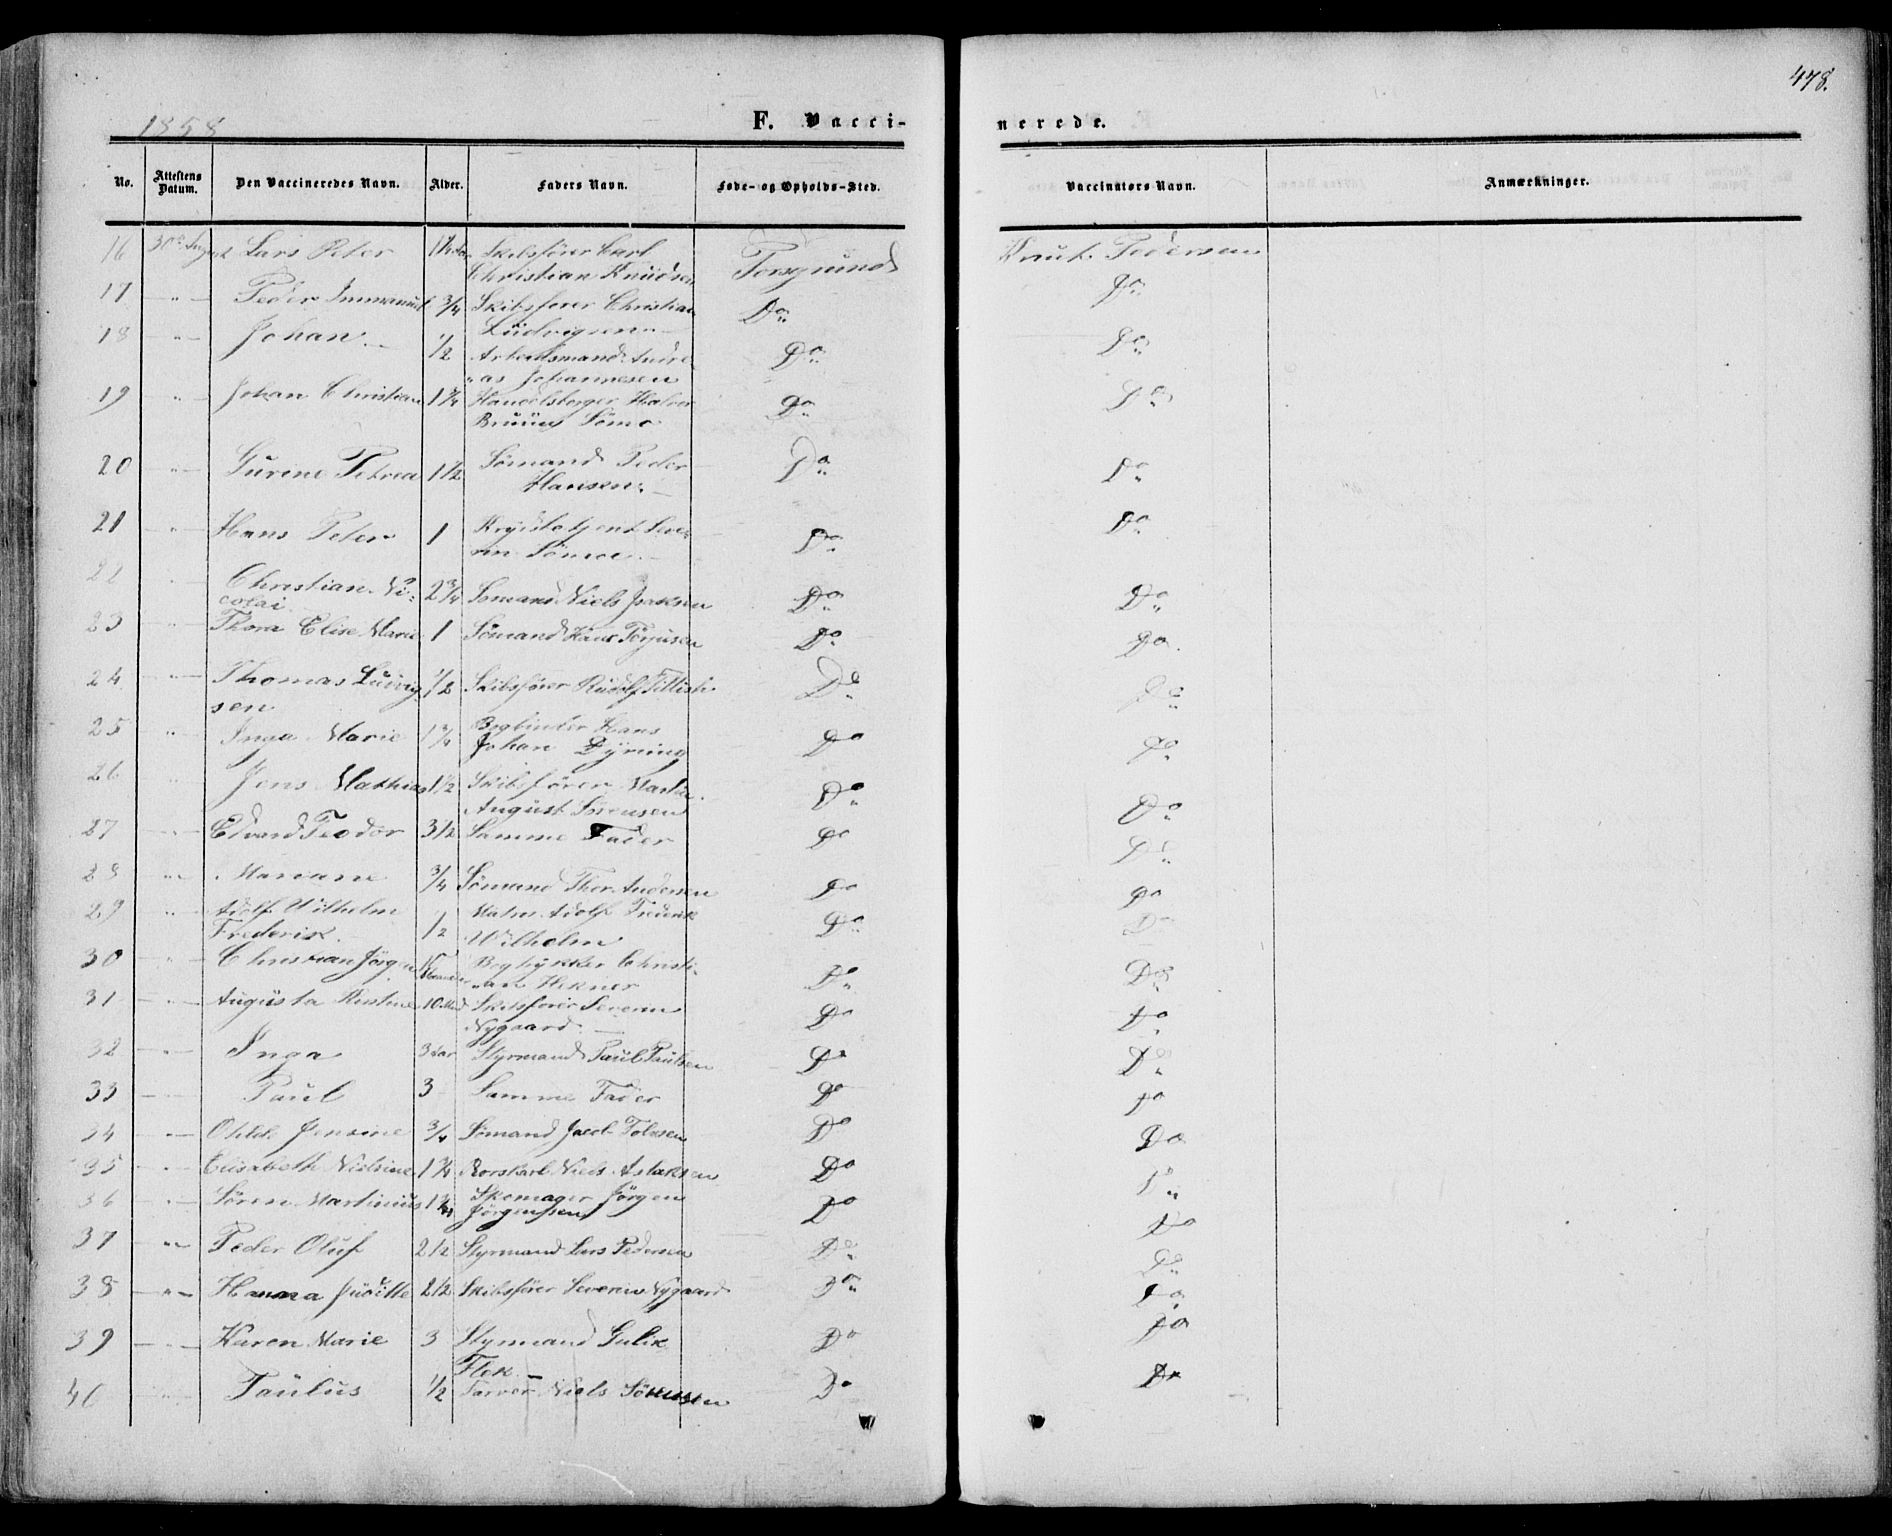 478.
1858
F. Vacci-
nerede.
No.
Attestens Datum.
Den Vaccineredes Navn.
Alder.
Faders Navn.
Føde- og Opholds-Sted.
Vaccinators Navn.
Anmærkninger.
16 30te August Lars Peter Skibsfører Carl Porsgrund Knut Pedersen
Christian Knudsen
17 " Peder Immanuel 3/4 Skibsfører Christian Do Do
Ludvigsen
18 " Johan 1/2 Arbeidsmand Andre- Do Do
as Johannesen
19 " Johan Christian 1 1/4 Handelsborger Halvor Do Do
20 " Gurine Petrea 1 1/2 Sömand Peder Do Do
Hansen
21 " Hans Peter 1 Do Do
22 " Christian Ni- 2 3/4 Sömand Niels Isaksen Do Do
colai
23 " Thora Elise Marie 1 Sömand Hans Terjusen Do Do
24 " Thomas Ludvig- 1/2 Skibsfører Rudolf Do Do
sen
25 " Inga Marie 1 3/4 Bogbinder Hans Do Do
Johan Dyring
26 " Jens Mathias 1 1/2 Skibsfører Martin Do Do
August Sörensen
27 " Edvard Teodor 3 1/2 Samme Fader Do Do
28 " Mariane 3/4 Sömand Thor Andersen Do Do
29 " Adolf Wilhelm 1/2 Adolf Frederik Do Do
Frederik Wilhelm
30 " Christian Jörgen Bogtrykker Christi- Do Do
an
31 " Augusta 10 Skibsfører Severin Do Do
Nygaard
32 " Inga 3 Aar Styrmand Paul Paulsen Do Do
33 " Paul 3 Samme Fader Do Do
34 " Jensine 3/4 Sömand Jacob Do Do
35 " Elisabeth Nielsine 1 3/4 Niels Aslaksen Do Do
36 " Sören Martinius 1 3/4 Skomager Jörgen Do Do
Jörgensen
37 " Peder Oluf 2 1/2 Styrmand Lars Pedersen Do Do
38 " Hanna Juditte 2 1/2 Skibsfører Severin Nygaard Do Do
39 " Karen Marie 3 Styrmand Gulik Do Do
Flek
40 " Paulus 1/2 Farver Niels Sörensen Do Do